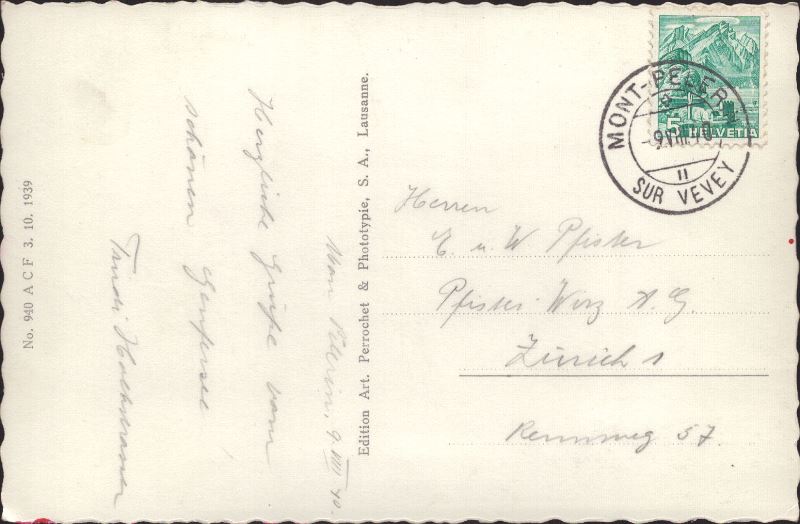 Mont Pélerin, 9. VIII 40.
Herzliche Grüsse vom
schönen Genfersee
Trudi
No. 940 A C F 3. 10. 1939
Edition Art. Perrochet & Phototypie, S. A., Lausanne.
5
HELVETIA
MONT-PELERIN
9 VIII 40
II
SUR VEVEY
Herren
E. u. W Pfister
Pfister-Wirz A. G.
Zürich 1
Rennweg 57.